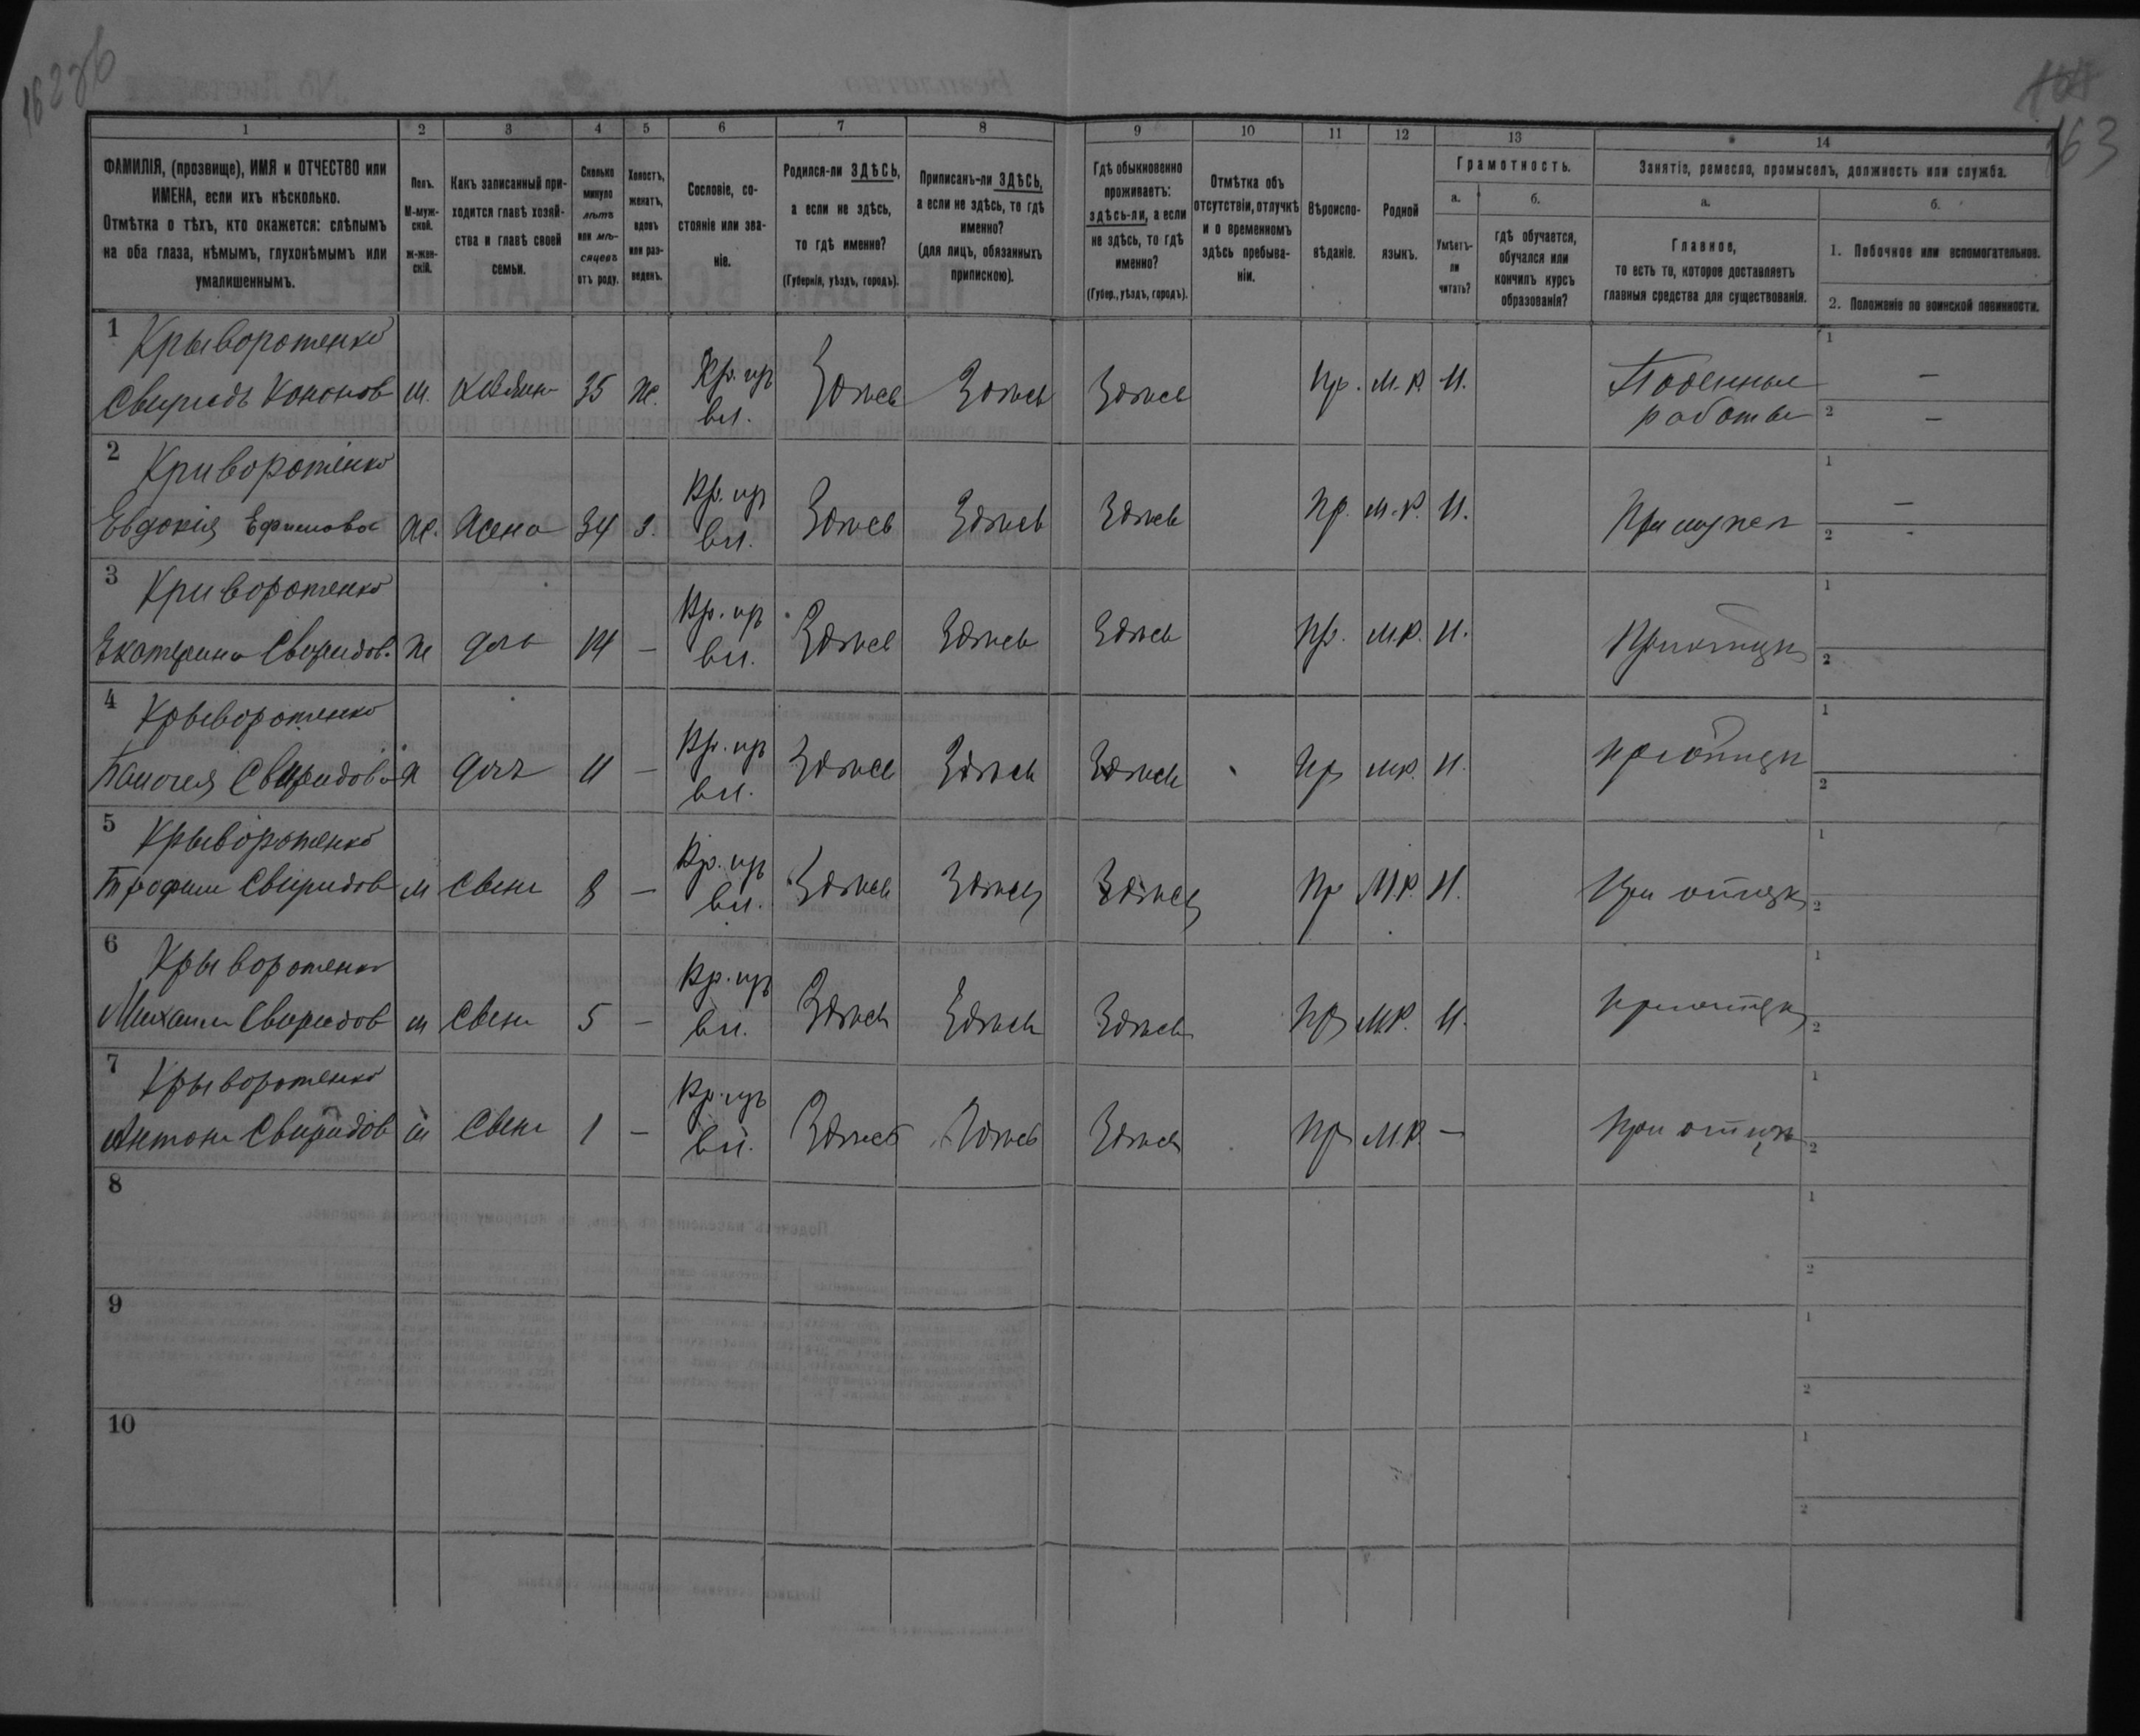 163
1
2
3
4
5
6
7
8
9
10
11
12
13
14
ФАМИЛІЯ, (прозвище), ИМЯ и ОТЧЕСТВО или
ИМЕНА, если ихъ нѣсколько.
Отмѣтка о тѣхъ, кто окажется: слѣпымъ
на оба глаза, нѣмымъ, глухонѣмымъ или
умалишеннымъ.
Полъ.
М-муж-
ской.
ж-жен-
скій.
Какъ записанный при-
ходится главѣ хозяй-
ства и главѣ своей
семьи.
Сколько
минуло
лѣтъ
или мѣ-
сяцевъ
отъ роду.
Холостъ,
женатъ,
вдовъ
или раз-
веденъ.
Сословіе, со-
стояніе или зва-
ніе.
Родился-ли ЗДѢСЬ,
а если не здѣсь,
то гдѣ именно?
(Губернія, уѣздъ, городъ).
Приписанъ-ли ЗДѢСЬ,
а если не здѣсь, то гдѣ
именно?
(для лицъ, обязанныхъ
припискою).
Гдѣ обыкновенно
проживаетъ:
здѣсь-ли, а если
не здѣсь, то гдѣ
именно?
(Губер., уѣздъ, городъ).
Отмѣтка объ
отсутствіи, отлучкѣ
и о временномъ
здѣсь пребыва-
ніи.
Вѣроиспо-
вѣданіе.
Родной
языкъ.
Грамотность.
а.
Умѣетъ-
ли
читать?
б.
гдѣ обучается,
обучался или
кончилъ курсъ
образованія?
Занятіе, ремесло, промыселъ, должность или служба.
а.
Главное,
то есть то, которое доставляетъ
главныя средства для существованія.
б.
1. Побочное или вспомогательное.
2. Положеніе по воинской повинности.
1 Крыворотенко
Свиридъ Кононов м. 35 ж. Кр. пр вл. Здѣсь Здѣсь Здѣсь Пр. М.Р. Н. Поденные работы 1 — 2 —
2 Криворотенко
Евдокія Ефимова ж. Жена 34 З. Кр. пр вл. Здѣсь Здѣсь Здѣсь Пр. М.Р. Н. При мужеи 1 — 2 -
3 Криворотенко
Екатерина Свиридов. ж доч 14 — Кр. пр вл. Здѣсь Здѣсь Здѣсь Пр. М.Р. Н. При отцѣ 1 2
4 Крыворотенко
Свиридова ж доч 11 — Кр. пр вл. Здѣсь Здѣсь Здѣсь Пр М.Р. Н. При отцѣ 1 2
5 Крыворотенко
Трофим Свиридов м Сын 8 — Кр. пр вл. Здѣсь Здѣсь Здѣсь Пр М.Р. Н. При отцѣ 1 2
6 Крыворотенко
Михаил Свиридов м Сын 5 — Кр. пр вл. Здѣсь Здѣсь Здѣсь Пр М.Р. Н. При отцѣ 1 2
7 Крыворотенко
Антон Свиридов м Сын 1 — Кр. пр вл. Здѣсь Здѣсь Здѣсь Пр М.Р. — При отцѣ 1 2
8 1 2
9 1 2
10 1 2